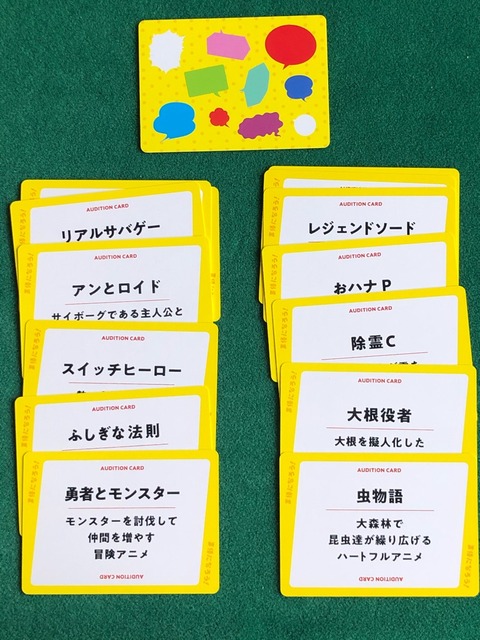 AUDITION CARD
リアルサバゲー
AUDITION CARD
アンとロイド
サイボーグである主人公と
AUDITION CARD
スイッチヒーロー
AUDITION CARD
ふしぎな法則
AUDITION CARD
勇者とモンスター
モンスターを討伐して
仲間を増やす
冒険アニメ
AUDITION CARD
AUDITION CARD
レジェンドソード
AUDITION CARD
おハナP
AUDITION CARD
除霊C
AUDITION CARD
大根役者
大根を擬人化した
AUDITION CARD
虫物語
大森林で
昆虫達が繰り広げる
ハートフルアニメ
AUDITION CARD